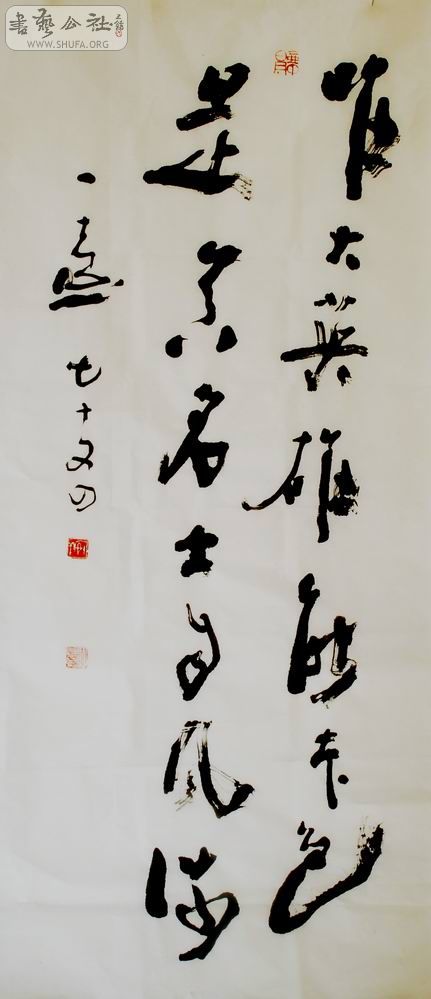 書藝公社
WWW.SHUFA.ORG
唯大英雄能本色
是真名士自風流
一
七十又四